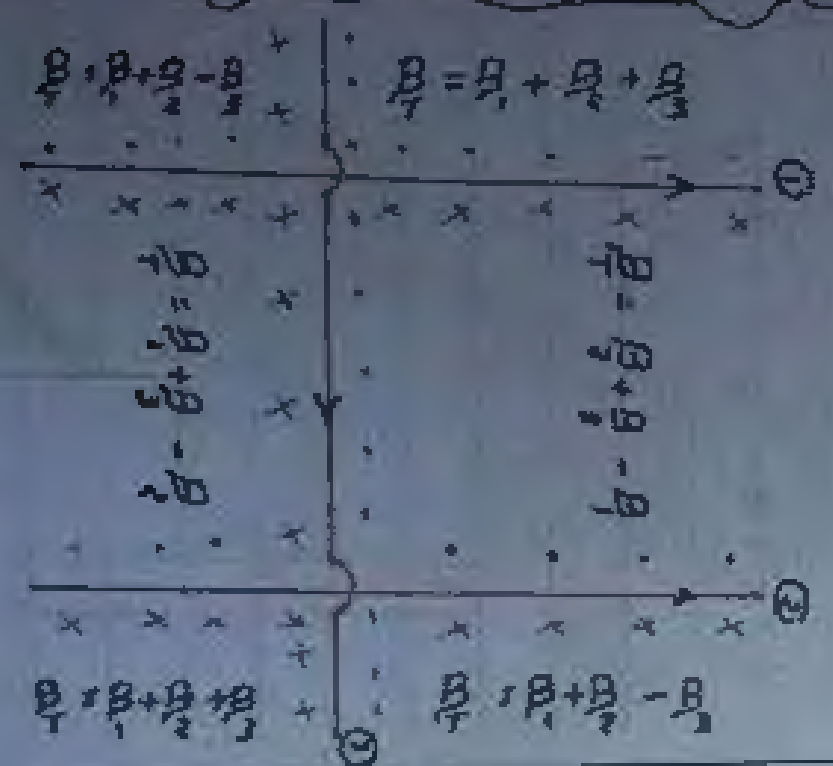 B_T = B_1 + B_2 - B_3
B_T = B_1 + B_2 + B_3
1
B_T = B_1 + B_3 - B_2
B_T = B_2 + B_3 - B_1
2
B_T = B_1 + B_2 + B_3
B_T = B_1 + B_2 - B_3